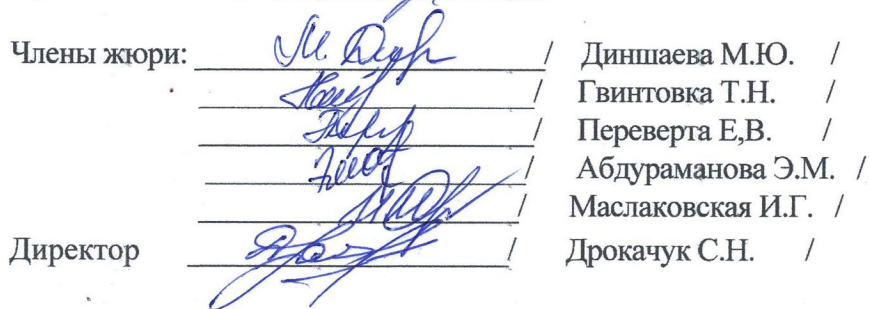 Члены жюри: / Диншаева М.Ю. /
/ Гвинтовка Т.Н. /
/ Переверта Е,В. /
/ Абдураманова Э.М. /
/ Маслаковская И.Г. /
Директор / Дрокачук С.Н. /